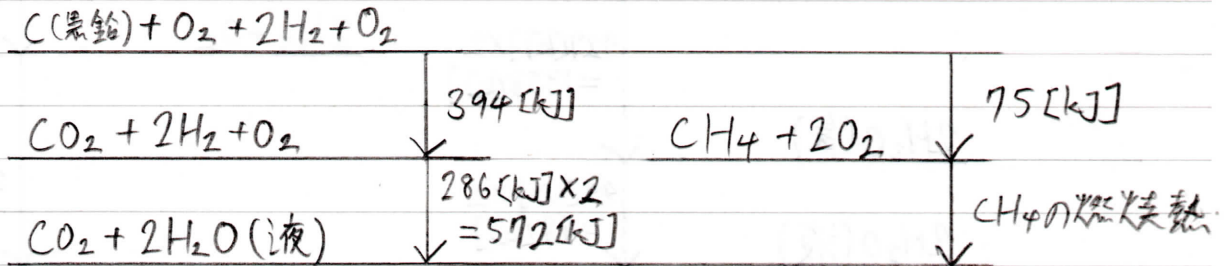 C(黒鉛) + O₂ + 2H₂ + O₂
394 [kJ]
75 [kJ]
CO₂ + 2H₂ + O₂
CH₄ + 2O₂
286 [kJ] × 2
= 572 [kJ]
CH₄の燃焼熱
CO₂ + 2H₂O (液)